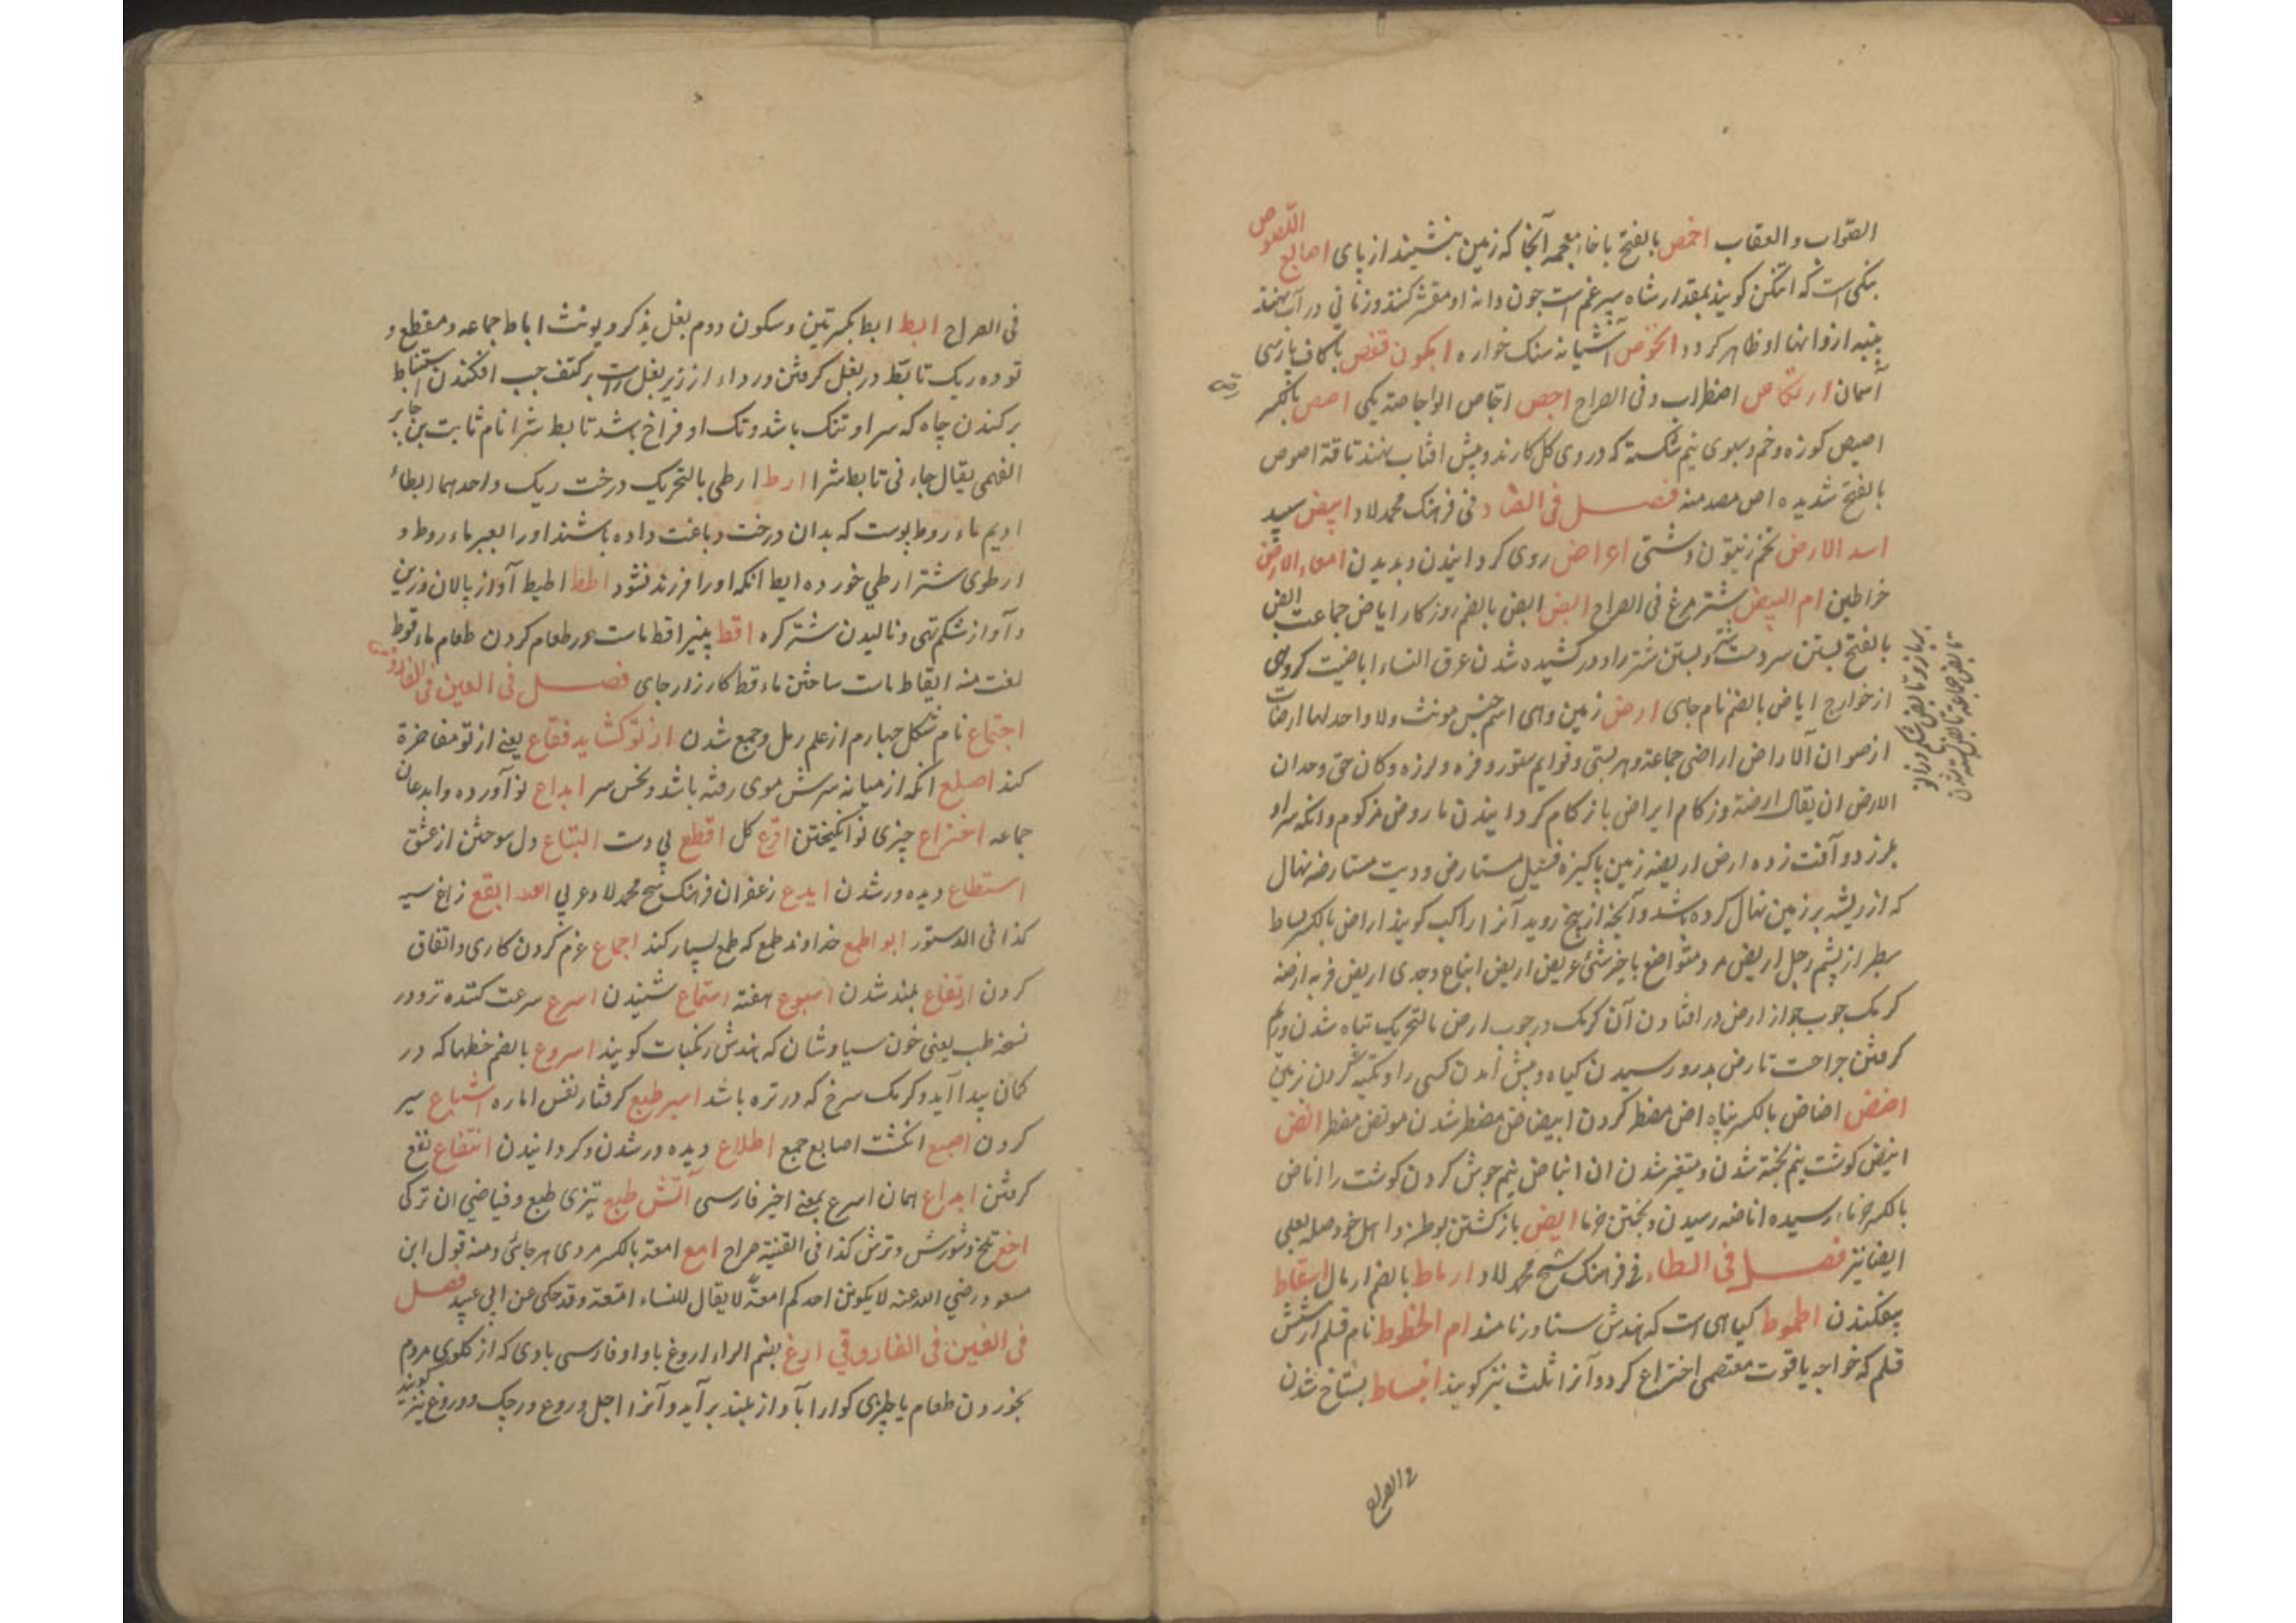 الصواب والعقاب اخمص بالفتح با خاء معجمه آنجا که زمین ننشیند از پای اصابع اللصوص
که اتنکن کویند بمقدار شاه سپرغم است چون دانه او مقشر کنند و زمانی در آب نهند
پنبه از وانها او ظاهر کردد الخوص آشیانه سنک خواره ابکون قفص باکاف پارسی
آسمان ارتکاص اضطراب و فی الصراح اجص اجاص الواحاصة یکی اصص بالکسر
اصیص کوزه و خم و سبوی نیم شکسته که در وی کل کارند و پیش افتاب نهند ناقة اصوص
بالفتح شدیده اص مصدر منه فصل فی الضاد فی فرهنک محمد لاد ابیض سپید
اسد الارض تخم زیتون دشتی اعراض روی کردانیدن و بدیدن امعاء الارض
خراطین ام البیض شتر مرغ فی الصراح ابض ابض بالضم روزکار اباض جماعت ابض
بالفتح بستن سر دست شتر و بستن شتر را و در کشیده شدن عرق النساء اباضیت کروهی
از خوارج اباض بالضم نام جای ارض زمین و هی اسم جنس مونث ولا واحد لها ارضات
ارضوان الاراض اراضی جماعة و هر پستی و قوایم ستور و فزه و لرزه و کان حق وحدان
الارض ان یقال ارضة و زکام ایراض با زکام کردانیدن ماروض مزکوم و انکه سر او
بلرزد و آفت زده ارض اریضه زمین پاکیزه فسیل مستارض و ودیت مستارضه نهال
که از ریشه بر زمین نهال کرده باشد و آنچه از بیخ روید آنرا راکب کویند اراض بالکسر بساط
سطبر از پشم رجل اریض مرد متواضع با خیر شئ عریض اریض اتباع و جدی اریض فربه ارضه
کرمک چوب خوار ارض در افتادن آن کرمک در چوب ارض بالتحریک تباه شدن و ریم
کرفتن جراحت تارض بدرو رسیدن کیاه و پیش آمدن کسی را و تکیه کردن زمین
اضض اضاض بالکسر پناه اض مضطر کردن ایتضاض مضطر شدن موتض مضطر انض
انیض کوشت نیم پخته شدن و متغیر شدن ان اناض نیم جوش کردن کوشت را اناض
بالکسر خرما رسیده اناضه رسیدن و پختن خرما ایض باز کشتن بوطن و اهل خود صله بعلی
ایضا نیز فصل فی الطاء فی فرهنک شیخ محمد لاد ارباط بالضم ارمال اسقاط
بیفکندن اطموط کیاهی است که هندش ستاور نامند ام الخطوط نام قلم از شش
قلم که خواجه یاقوت معتصمی اختراع کرد و آنرا ثلث نیز کویند انبساط بستاخ شدن
فی الصراح
فی الصراح ابط ابط بکسرتین و سکون دوم بغل یذکر و یونث اباط جماعه و مقطع و
توده ریک تابط در بغل کرفتن و رداء از زیر بغل راست بر کتف چپ افکندن استنباط
برکندن چاه که سر او تنک باشد و تک او فراخ باشد تابط شرا نام ثابت بن جابر
الفهمی یقال جاءنی تابط شرا ارط ارطی بالتحریک درخت ریک واحدهما ارطاة
ادیم ماروط پوست که بدان درخت دباغت داده باشند او را بعیر ماروط و
ارطوی شتر ارطی خورده ایط انکه او را فرزند نشود اطط اطیط آواز پالان و زین
و آواز شکم تهی و نالیدن شتر کره اقط پنیر اقط ماست در طعام کردن طعام ماقوط
لغت منه ایقاط ماست ساختن ماقط کارزار جای فصل فی العین فی الفاروقی
اجتماع نام شکل چهارم از علم رمل و جمع شدن از تو کشاید فقاع یعنی از تو مفاخرة
کند اصلع انکه از میانه سرش موی رفته باشد و نحس سر ابداع نو آورده و ابدعان
جماعه اختراع چیزی نو انکیختن اقرع کل اقطع بی دست التیاع دل سوختن از عشق
استطلاع دیده ور شدن ایدع زعفران فرهنک شیخ محمد لاد عربی ابقع زاغ سیه
کذا فی الدستور ابو اطمع خداوند طمع که طمع بسیار کند اجماع عزم کردن کاری و اتفاق
کردن ارتفاع بلند شدن اسبوع هفته استماع شنیدن اسرع سرعت کننده تر و در
نسخه طب یعنی خون سیاوشان که هندش رنکبات کویند اسروع بالضم خطها که در
کمان پیدا آید و کرمک سرخ که در تره باشد اسیر طبع کرفتار نفس اماره اشباع سیر
کردن اصبع انکشت اصابع جمع اطلاع دیده ور شدن و کردانیدن انتفاع نفع
کرفتن ابداع همان اسرع بمعنی اخیر فارسی آتش طبع تیزی طبع و فیاضی ان ترکی
اخع تلخ و شورش و ترش کذا فی القنیة صراح امع امعة بالکسر مردی هر جائی و منه قول ابن
مسعود رضی الله عنه لا یکونن احدکم امعة لا یقال للنساء امعة و قد حکی عن ابی عبید فصل
فی الغین فی الفاروقی ارغ بضم الراء اروغ با واو فارسی بادی که از کلوی مردم
بخوردن طعام یا چیزی کوارا آواز بلند برآید و آنرا اجل و روغ و رجک و دروغ نیز کویند